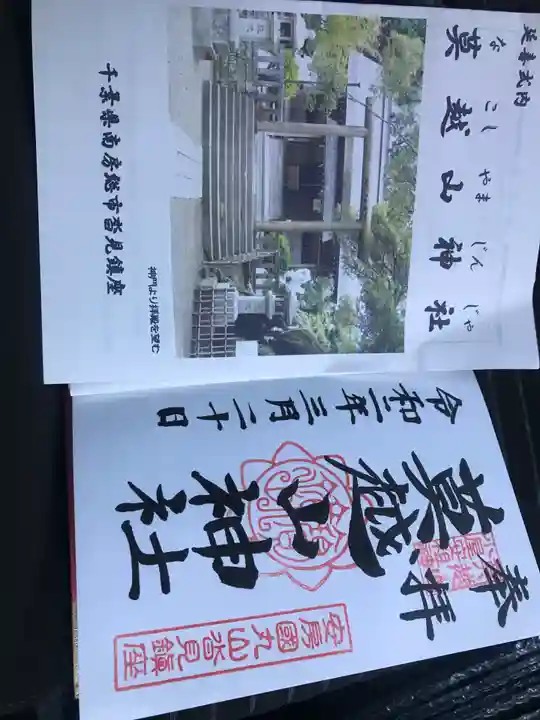 延喜式内
なこしやまじんじゃ
莫越山神社
神門より拝殿を望む
千葉県南房総市沓見鎮座
奉拝
莫越山神社
令和二年三月二十日
安房國丸山沓見鎮座